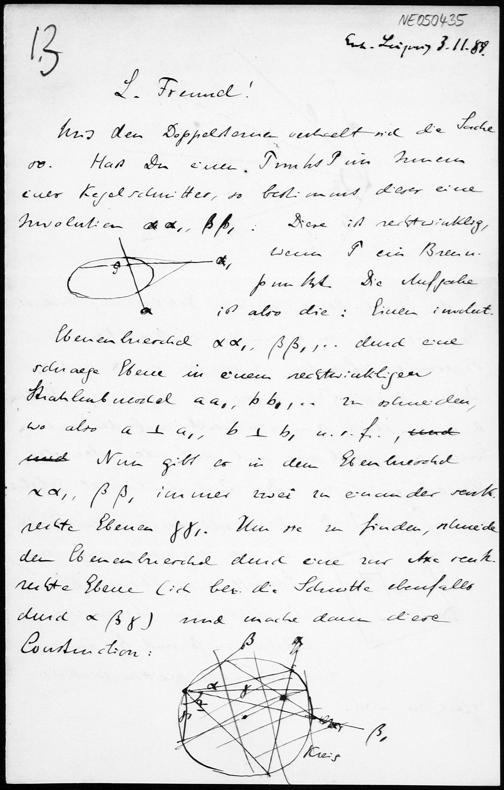 NE050435
13
Leipzig 3.11.88.
L. Freund!
Mit den Doppelsternen verhaelt sich die Sache
so. Hast Du einen Punkt P im Innern
eines Kegelschnittes, so bestimmt dieser eine
Involution αα₁, ββ₁ : Diese ist rechtwinklig,
wenn P ein Brenn-
punkt. Die Aufgabe
ist also die: Einen involut.
α₁
α
Ebenenbueschel αα₁, ββ₁,.. durch eine
schraege Ebene in einem rechtwinkligen
Strahlenbueschel aa₁, bb₁,.. zu schneiden,
wo also a ⊥ a₁, b ⊥ b₁ u.s.f.,
Nun gibt es in dem Ebenbueschel
αα₁, ββ₁ immer zwei zu einander senk-
rechte Ebenen γγ₁. Um sie zu finden, schneide
den Ebenenbueschel durch eine zur Axe senk-
rechte Ebene (ich bez. die Schnitte ebenfalls
durch α β γ) und mache dann diese
Construction:
β
α
γ
β₁
Kreis